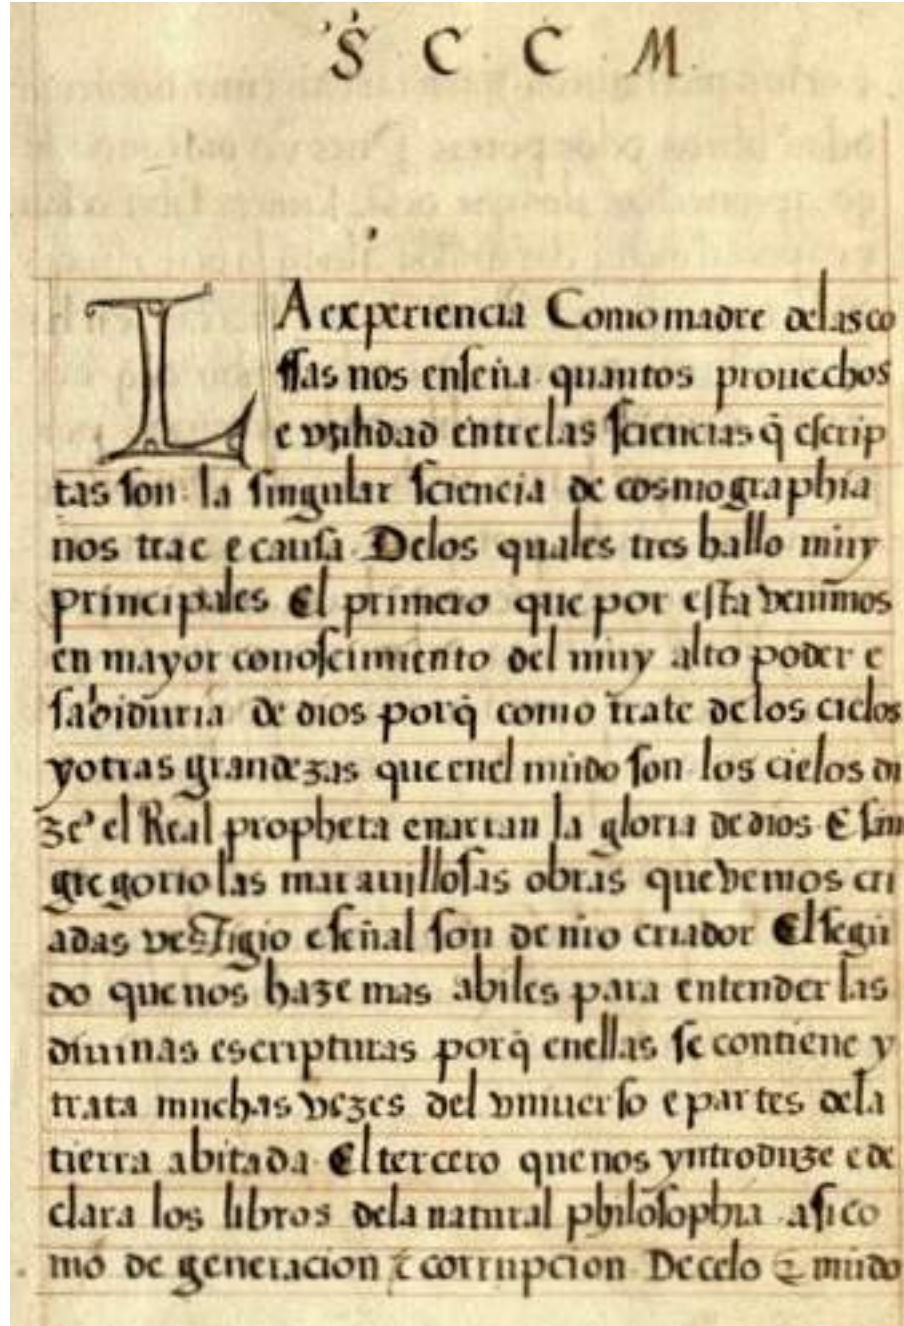 S. C. C. M.
LA experiencia Como madre delas co
ssas nos enseña quantos prouechos
e vtilidad entre las sciencias q̃ escrip
tas son la singular sciencia de cosmographia
nos trae e causa Delos quales tres hallo muy
principales El primero que por esta venimos
en mayor conoscimiento del muy alto poder e
sabiduria de dios porq̃ como trate de los cielos
y otras grandezas que enel mũdo son los cielos di
ze el Real propheta enarran la gloria de dios E san
gregorio las marauillosas obras que vemos cri
adas vestigio e señal son de nr̃o criador El segũ
do que nos haze mas abiles para entender las
diuinas escripturas porq̃ enellas se contiene y
trata muchas vezes del vniuerso e partes dela
tierra abitada El tercero que nos yntroduze e de
clara los libros dela natural philosophia asi co
mo de generacion e corrupcion De celo e mũdo